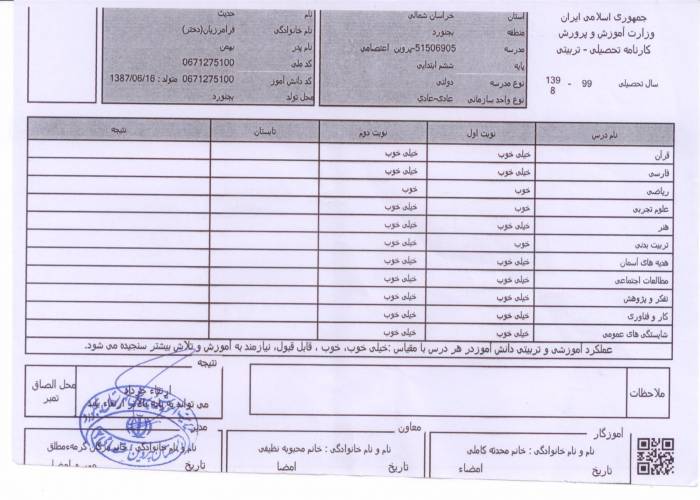 جمهوری اسلامی ایران
وزارت آموزش و پرورش
کارنامه تحصیلی - تربیتی
سال تحصیلی 99 - 1398
استان خراسان شمالی
منطقه بجنورد
مدرسه 51506905-پروین اعتصامی
پایه ششم ابتدایی
نوع مدرسه دولتی
نوع واحد سازمانی عادی-عادی
نام حدیث
نام خانوادگی فرامرزیان(دختر)
نام پدر بهمن
کد ملی 0671275100
کد دانش آموز 0671275100 متولد : 1387/06/16
محل تولد بجنورد
نام درس نوبت اول نوبت دوم تابستان نتیجه
قرآن خیلی خوب خیلی خوب
فارسی خیلی خوب خیلی خوب
ریاضی خوب خوب
علوم تجربی خوب خیلی خوب
هنر خیلی خوب خیلی خوب
تربیت بدنی خوب خیلی خوب
هدیه های آسمان خیلی خوب خیلی خوب
مطالعات اجتماعی خیلی خوب خیلی خوب
تفکر و پژوهش خیلی خوب خیلی خوب
کار و فناوری خیلی خوب خیلی خوب
شایستگی های عمومی خیلی خوب خیلی خوب
عملکرد آموزشی و تربیتی دانش آموزدر هر درس با مقیاس :خیلی خوب، خوب ، قابل قبول، نیازمند به آموزش و تلاش بیشتر سنجیده می شود.
ملاحظات
نتیجه
ارتقاء خرداد
می تواند به پایه بالاتر ارتقاء یابد
محل الصاق
تمبر
آموزگار
نام و نام خانوادگی : خانم محدثه کاملی
تاریخ امضاء
معاون
نام و نام خانوادگی : خانم محبوبه نظیفی
تاریخ امضا
مدیر
نام و نام خانوادگی : خانم
تاریخ